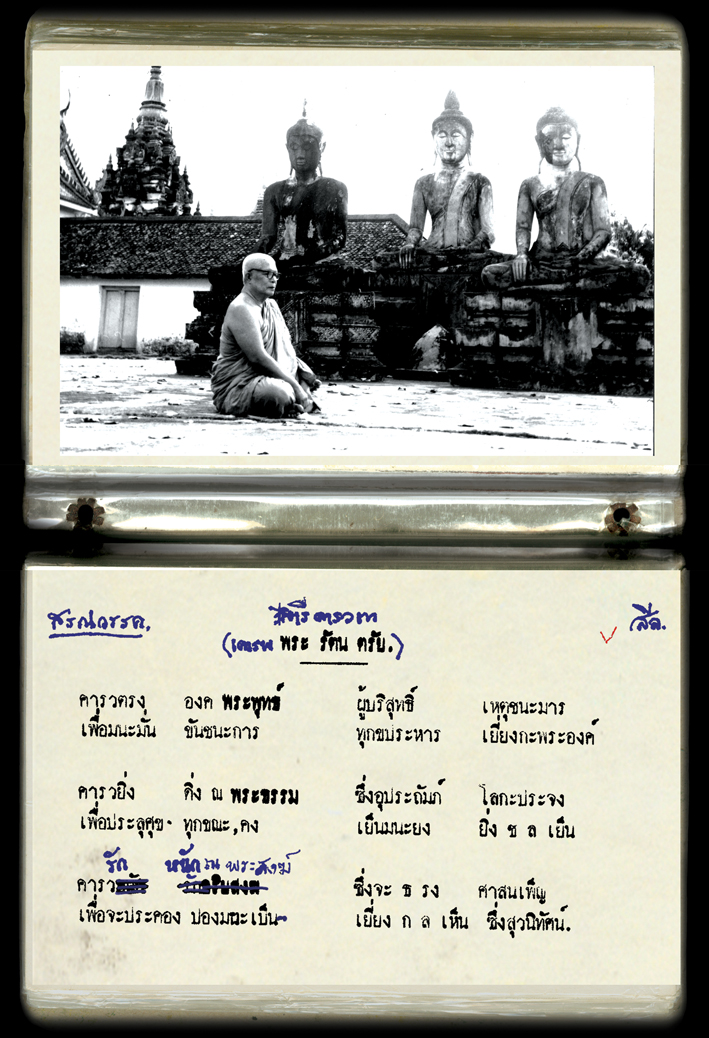 สรณวรรค. ตรีคารวเท สิริ.
(เคารพ พระ รัตน ตรัย.)
คารวตรง องค พระพุทธ์ ผู้บริสุทธิ์ เหตุชนะมาร
เพื่อมนะมั่น ขันชนะการ ทุกขประหาร เยี่ยงกะพระองค์
คารวยิ่ง ดิ่ง ณ พระธรรม ซึ่งอุปะถัมภ์ โลกะประจง
เพื่อประลุศุข ทุกขณะ, คง เย็นมนะยง ยิ่ง ช ล เย็น
รัก หนัก ณ พระสงฆ์
คารว ซึ่งจะ ธ รง ศาสนเพ็ญ
เพื่อจะประคอง ปองมนะเป็น เยี่ยง ก ล เห็น ซึ่งสุวนิทัศน์.